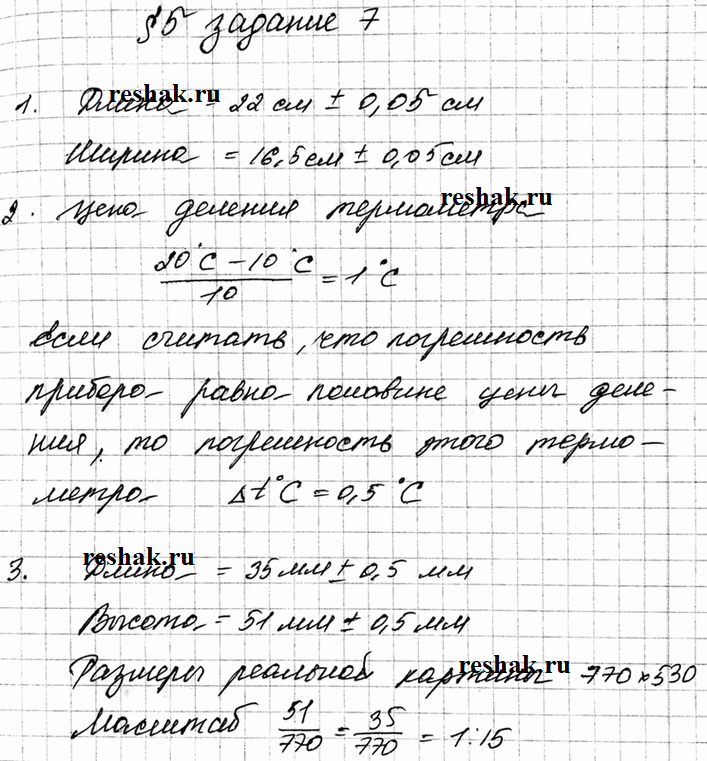 §5 задание 7
1. Длина = 22 см ± 0,05 см
reshak.ru
Ширина = 16,5 см ± 0,05 см
2. Цена деления термометра
reshak.ru
20°C - 10°C / 10 = 1°C
если считать, что погрешность
прибора равна половине цены деле-
ния, то погрешность этого термо-
метра Δt°C = 0,5°C
3. Длина = 35 мм ± 0,5 мм
reshak.ru
Высота = 51 мм ± 0,5 мм
Размеры реальной картины 770 x 530
reshak.ru
Масштаб 51/770 = 35/770 = 1:15